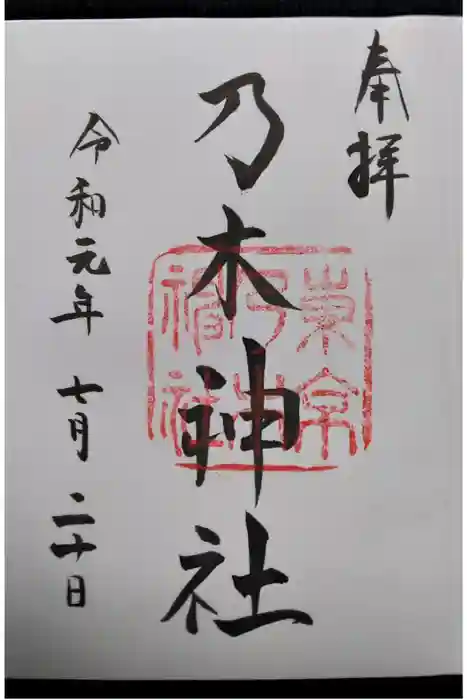 奉拝
乃木神社
東京
乃木
神社
令和元年 七月 二十日